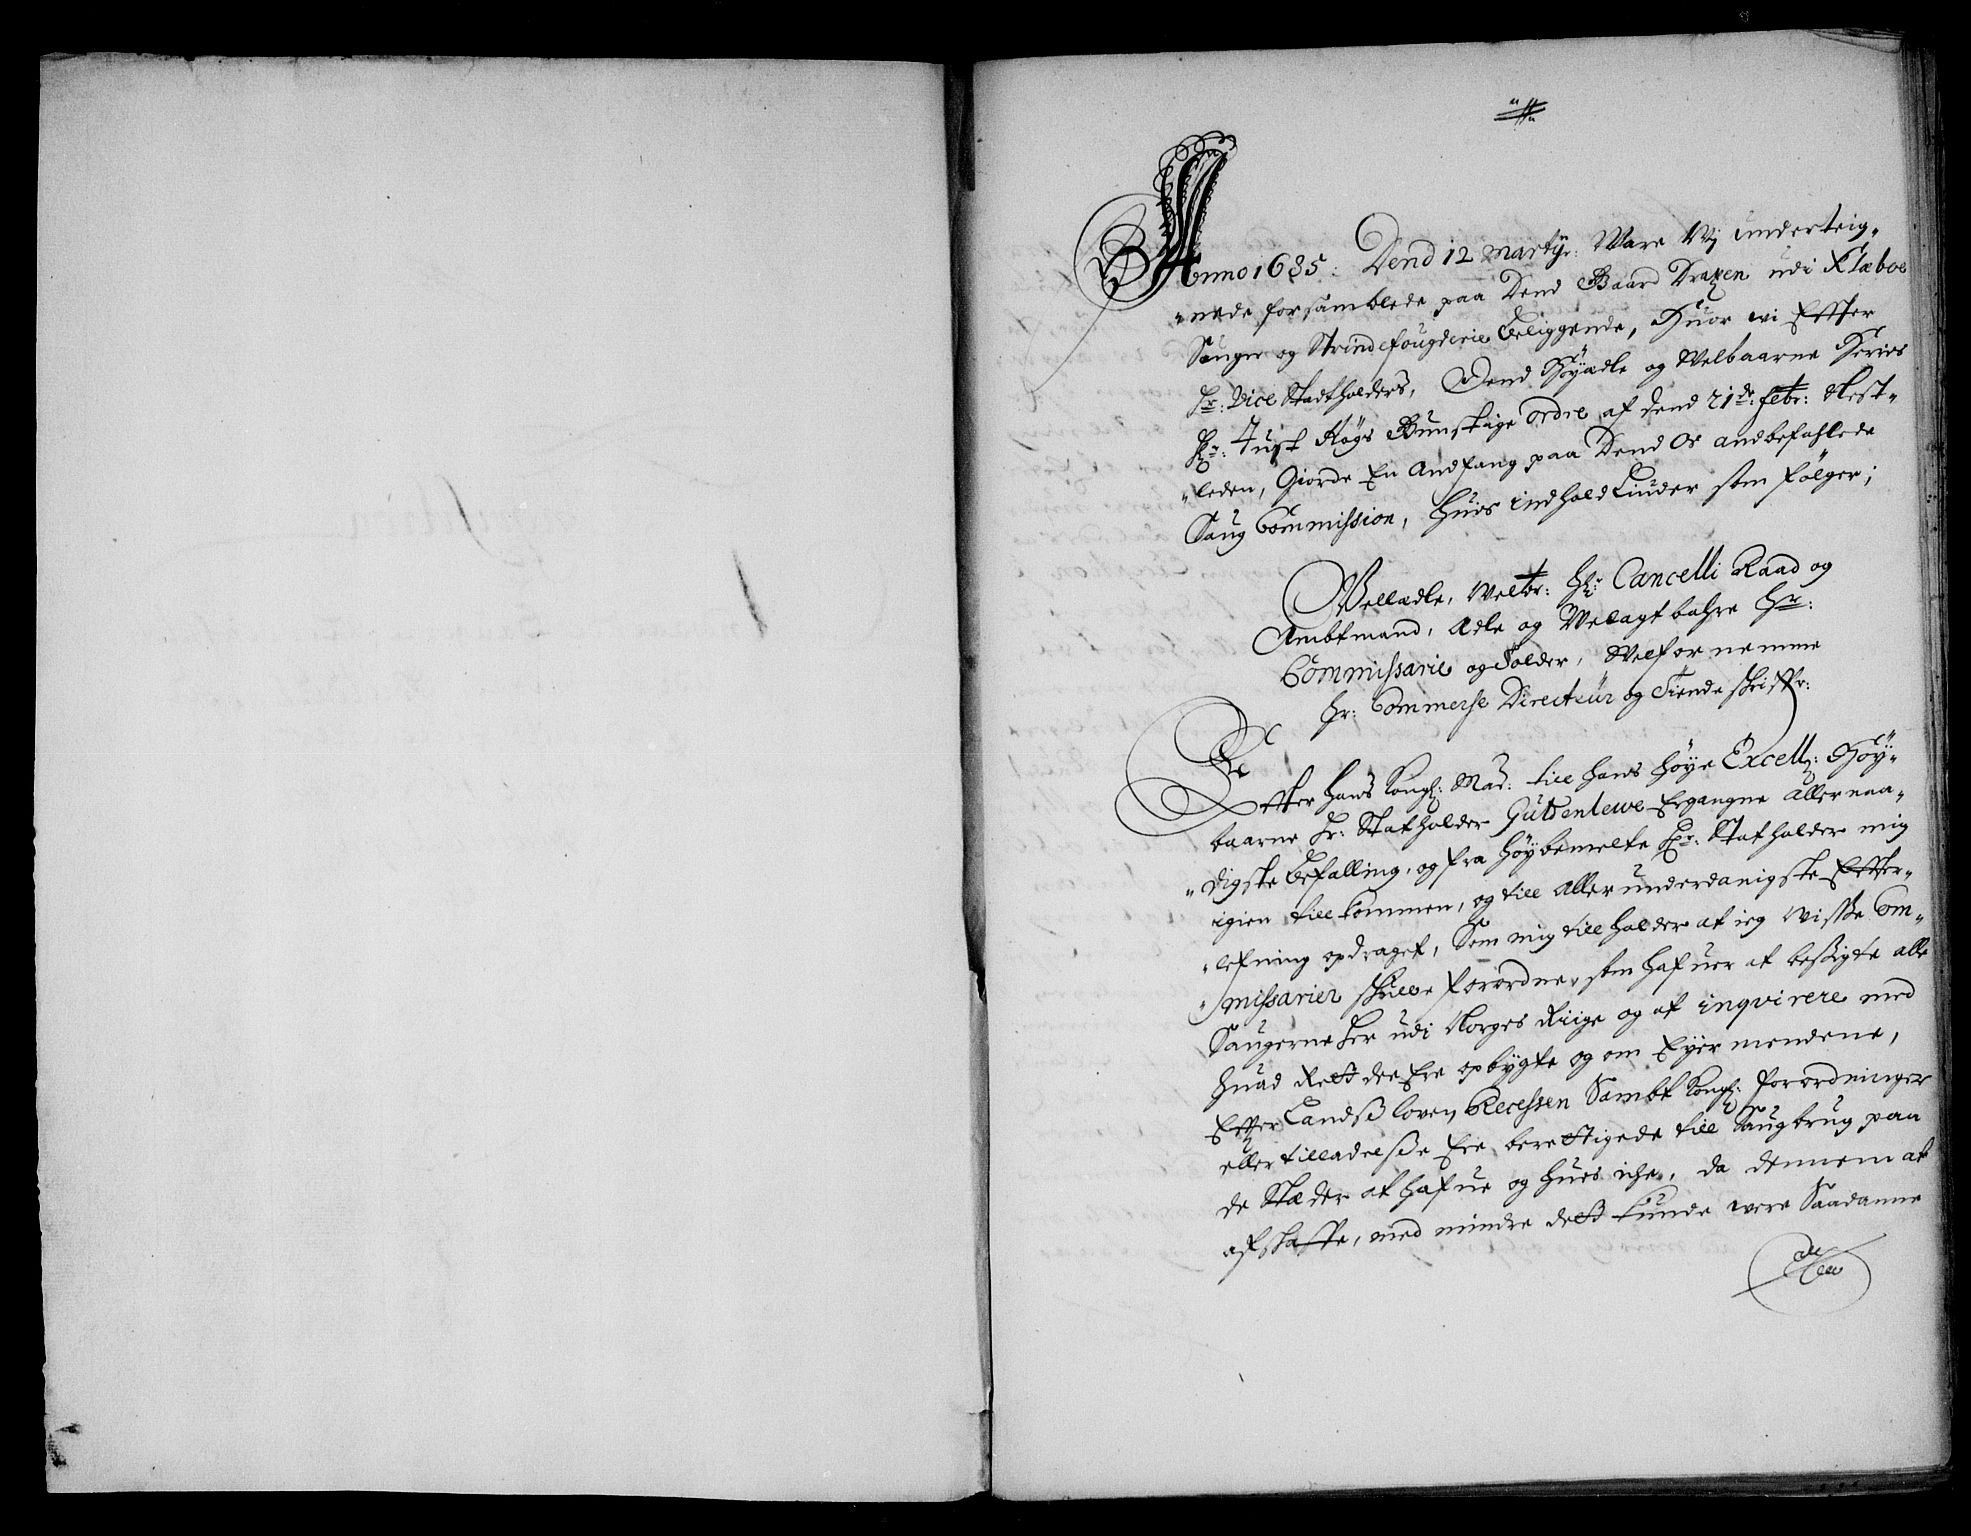 Anno 1685: Dend 12 Martij: Ware Wj underteig„
„nede forsamblede paa Dend Gaard Draxen udi Klæboe
Sougn og Strinde fougderie beliggende, Huor wi Efter
Hr: Vice Stadtholders, Dend Höyædle og Welbaarne Herres
Hr: Just Høgs Gunstige Ordre af dend 21de: febr: Nest„
„leden, Giorde En Andfang paa Dend Os andbefahlede
Saug Commission, Huis indhold Liuder som fölger;
Vellædle, Welbr: Hr: Cancelli Raad og
Ambtmand, Ædle og Velagtbahre Hr:
Commissarie og Tolder, Welfornemme
Hr: Commerse Directeür og Tiende skriffr:
Efter hans Kongl: May: till hans höye Excell: Höy„
baarne Hr: Statholder Güldenlewe Ergangne allernaa„
„digste befalling, og fra höybemelte Hr: Statholder mig
igien till kommen, og till allerunderdanigste Efter„
„lefning opdraget, Som mig tillholder at ieg wisse Com„
„missarier skulle forordne, som hafuer at besigte alle
Saugerne her udi Norges Riige og at inqvirere med
huad Rett de Ere opbygte og om Eyermendene,
Efter Landsloven, Recessen Sambt Kongl: forordninger
eller tilladelse Ere berettigede till Saugbrug paa
de Stæder at hafue og huis iche, da dennem at
afskaffe, med mindre dett kunde were Saadanne